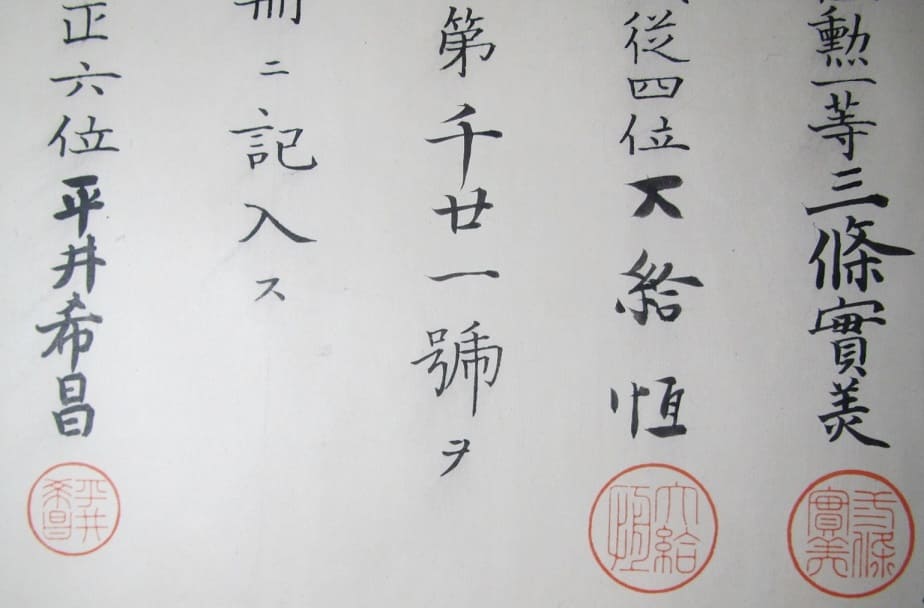 勲一等三條實美
從四位大給恒
第千廿一號ヲ
冊ニ記入ス
正六位平井希昌
三條
實美
大給
恒
平井
希昌